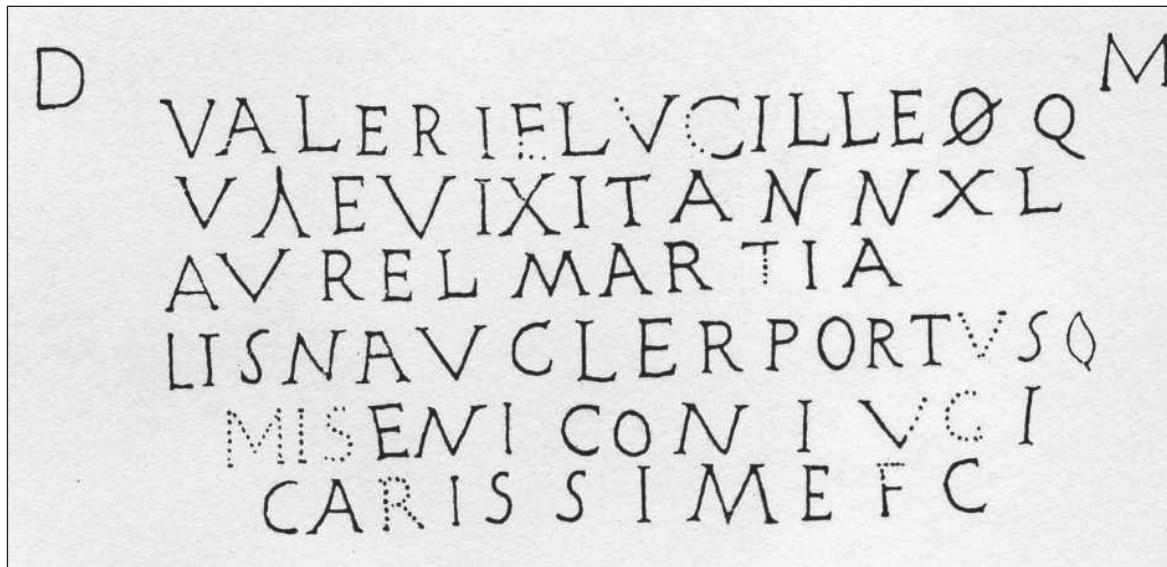 D M
VALERIELVCILLEØQ
VAEVIXITANNXL
AVRELMARTIA
LISNAVCLERPORTVSQ
MISENICONIVGI
CARISSIMEFC